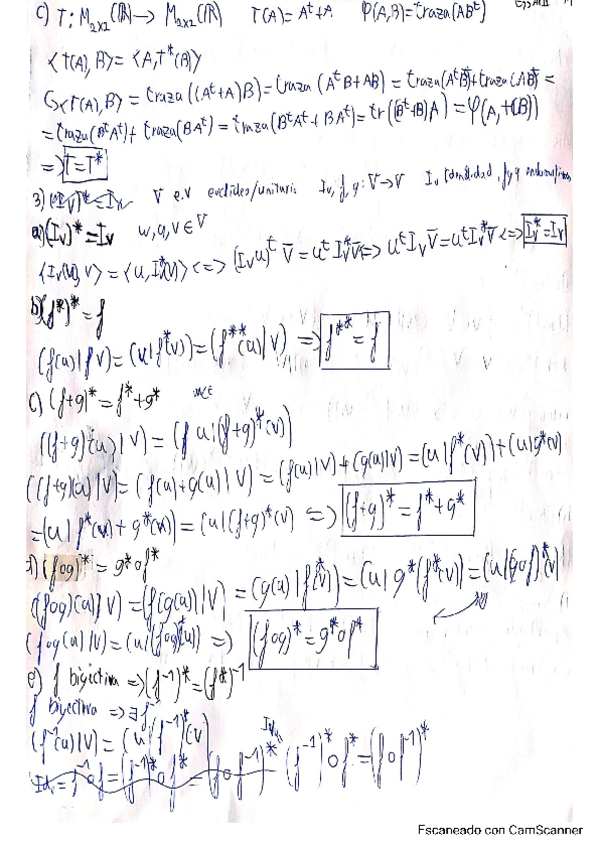 c) T: M₂ₓ₂(ℝ) → M₂ₓ₂(ℝ) T(A) = Aᵗ + A φ(A,B) = traza(ABᵗ)
⟨T(A), B⟩ = ⟨A, T*(B)⟩
⟨T(A), B⟩ = traza((Aᵗ+A)B) = traza(AᵗB+AB) = traza(AᵗB) + traza(AB) =
= traza(BᵗA) + traza(BAᵗ) = traza(BᵗAᵗ + BAᵗ) = tr((Bᵗ+B)A) = φ(A, T(B))
=> T = T*
3) V e.v euclídeo/unitario I_v, f, g: V → V I_v identidad, f y g endomorfismos
a) (I_v)* = I_v w, u, v ∈ V
⟨I_v(u), v⟩ = ⟨u, I_v*(v)⟩ <=> (I_v u)ᵗ v̄ = uᵗ I_v* v̄ <=> uᵗ I_v v̄ = uᵗ I_v* v̄ <=> I_v* = I_v
b) (f*)* = f
(f(u) | v) = (u | f*(v)) = (f**(u) | v) => f** = f
c) (f+g)* = f* + g*
((f+g)(u) | v) = (u | (f+g)*(v))
((f+g)(u) | v) = (f(u)+g(u) | v) = (f(u)|v) + (g(u)|v) = (u | f*(v)) + (u | g*(v))
= (u | f*(v) + g*(v)) = (u | (f+g)*(v)) => (f+g)* = f* + g*
d) (f∘g)* = g*∘f*
((f∘g)(u) | v) = (f(g(u)) | v) = (g(u) | f*(v)) = (u | g*(f*(v))) = (u | (g∘f)*(v))
(f∘g(u) | v) = (u | (f∘g)*(u)) => (f∘g)* = g*∘f*
e) f biyectiva => (f⁻¹)* = (f*)⁻¹
f biyectiva => ∃ f⁻¹
(f⁻¹(u) | v) = (u | (f⁻¹)*(v))
Id = f⁻¹∘f = (f⁻¹)*∘f* = (f∘f⁻¹)* (f⁻¹)*∘f* = (f∘f⁻¹)*
Escaneado con CamScanner